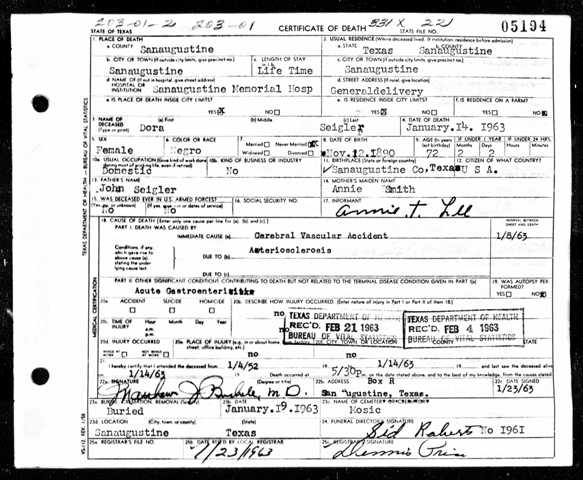 203-01-2 203-01 331 X 22
STATE OF TEXAS CERTIFICATE OF DEATH STATE FILE NO. 05194
1. PLACE OF DEATH 2. USUAL RESIDENCE (Where deceased lived. If institution: residence before admission)
a. COUNTY a. STATE b. COUNTY
Sanaugustine Texas Sanaugustine
b. CITY OR TOWN (If outside city limits, give precinct no.) c. LENGTH OF STAY c. CITY OR TOWN (If outside city limits, give precinct no.)
Sanaugustine Life Time Sanaugustine
d. NAME OF (If not in hospital, give street address) HOSPITAL OR INSTITUTION d. STREET ADDRESS (If rural, give location)
Sanaugustine Memorial Hosp Generaldelivery
e. IS PLACE OF DEATH INSIDE CITY LIMITS? e. IS RESIDENCE INSIDE CITY LIMITS? f. IS RESIDENCE ON A FARM?
YES X NO YES NO YES NO
3. NAME OF DECEASED (Type or print) (a) First (b) Middle (c) Last 4. DATE OF DEATH
Dora Seigler January.14. 1963
5. SEX 6. COLOR OR RACE 7. Married Never Married Widowed Divorced 8. DATE OF BIRTH 9. AGE (In years last birthday) IF UNDER 1 YEAR IF UNDER 24 HRS.
Female Negro Nov.12.1890 72 2 2
10a. USUAL OCCUPATION (Give kind of work done during most of working life, even if retired) 10b. KIND OF BUSINESS OR INDUSTRY 11. BIRTHPLACE (State or foreign country) 12. CITIZEN OF WHAT COUNTRY?
Domestic No Sanaugustine Co.Texas U S A.
13. FATHER'S NAME 14. MOTHER'S MAIDEN NAME
John Seigler Annie Smith
15. WAS DECEASED EVER IN U.S. ARMED FORCES? 16. SOCIAL SECURITY NO. 17. INFORMANT
No No Annie T. Lee
18. CAUSE OF DEATH [Enter only one cause per line for (a), (b), and (c).] INTERVAL BETWEEN ONSET AND DEATH
PART I. DEATH WAS CAUSED BY:
IMMEDIATE CAUSE (a) Cerebral Vascular Accident 1/8/63
Conditions, if any which gave rise to above cause (a), stating the underlying cause last. DUE TO (b) Arteriosclerosis
DUE TO (c)
PART II OTHER SIGNIFICANT CONDITIONS CONTRIBUTING TO DEATH BUT NOT RELATED TO THE TERMINAL DISEASE CONDITION GIVEN IN PART I(a) 19. WAS AUTOPSY PERFORMED?
Acute Gastroenteritis YES NO
20a. ACCIDENT SUICIDE HOMICIDE 20b. DESCRIBE HOW INJURY OCCURRED. (Enter nature of injury in Part I or Part II of item 18.)
no
20c. TIME OF INJURY Hour Month Day Year a.m. p.m.
TEXAS DEPARTMENT OF HEALTH REC'D FEB 21 1963 BUREAU OF VITAL STATISTICS
TEXAS DEPARTMENT OF HEALTH REC'D FEB 4 1963 BUREAU OF VITAL STATISTICS
20d. INJURY OCCURRED 20e. PLACE OF INJURY 20f. CITY, TOWN, OR LOCATION COUNTY STATE
no no
21. I hereby certify that I attended the deceased from 1/4/52 19 to 1/14/63
1/14/63 Death occurred at 5/30p.m. on the date stated above, and to the best of my knowledge, from the causes stated.
22a. SIGNATURE (Degree or title) 22b. ADDRESS Box R 22c. DATE SIGNED
M.D. San ugustine, Texas. 1/23/63
23a. BURIAL, CREMATION, REMOVAL (Specify) 23b. DATE 23c. NAME OF CEMETERY OR CREMATORY
Buried January.19.1963 Mosic
23d. LOCATION (City, town, or county) (State) 24. FUNERAL DIRECTOR'S SIGNATURE
Sanaugustine Texas Sid Roberts No 1961
25a. REGISTRAR'S FILE NO. 25b. DATE REC'D BY LOCAL REGISTRAR 25c. REGISTRAR'S SIGNATURE
1/23/1963 Dennis Price
TEXAS DEPARTMENT OF HEALTH - BUREAU OF VITAL STATISTICS
MEDICAL CERTIFICATION